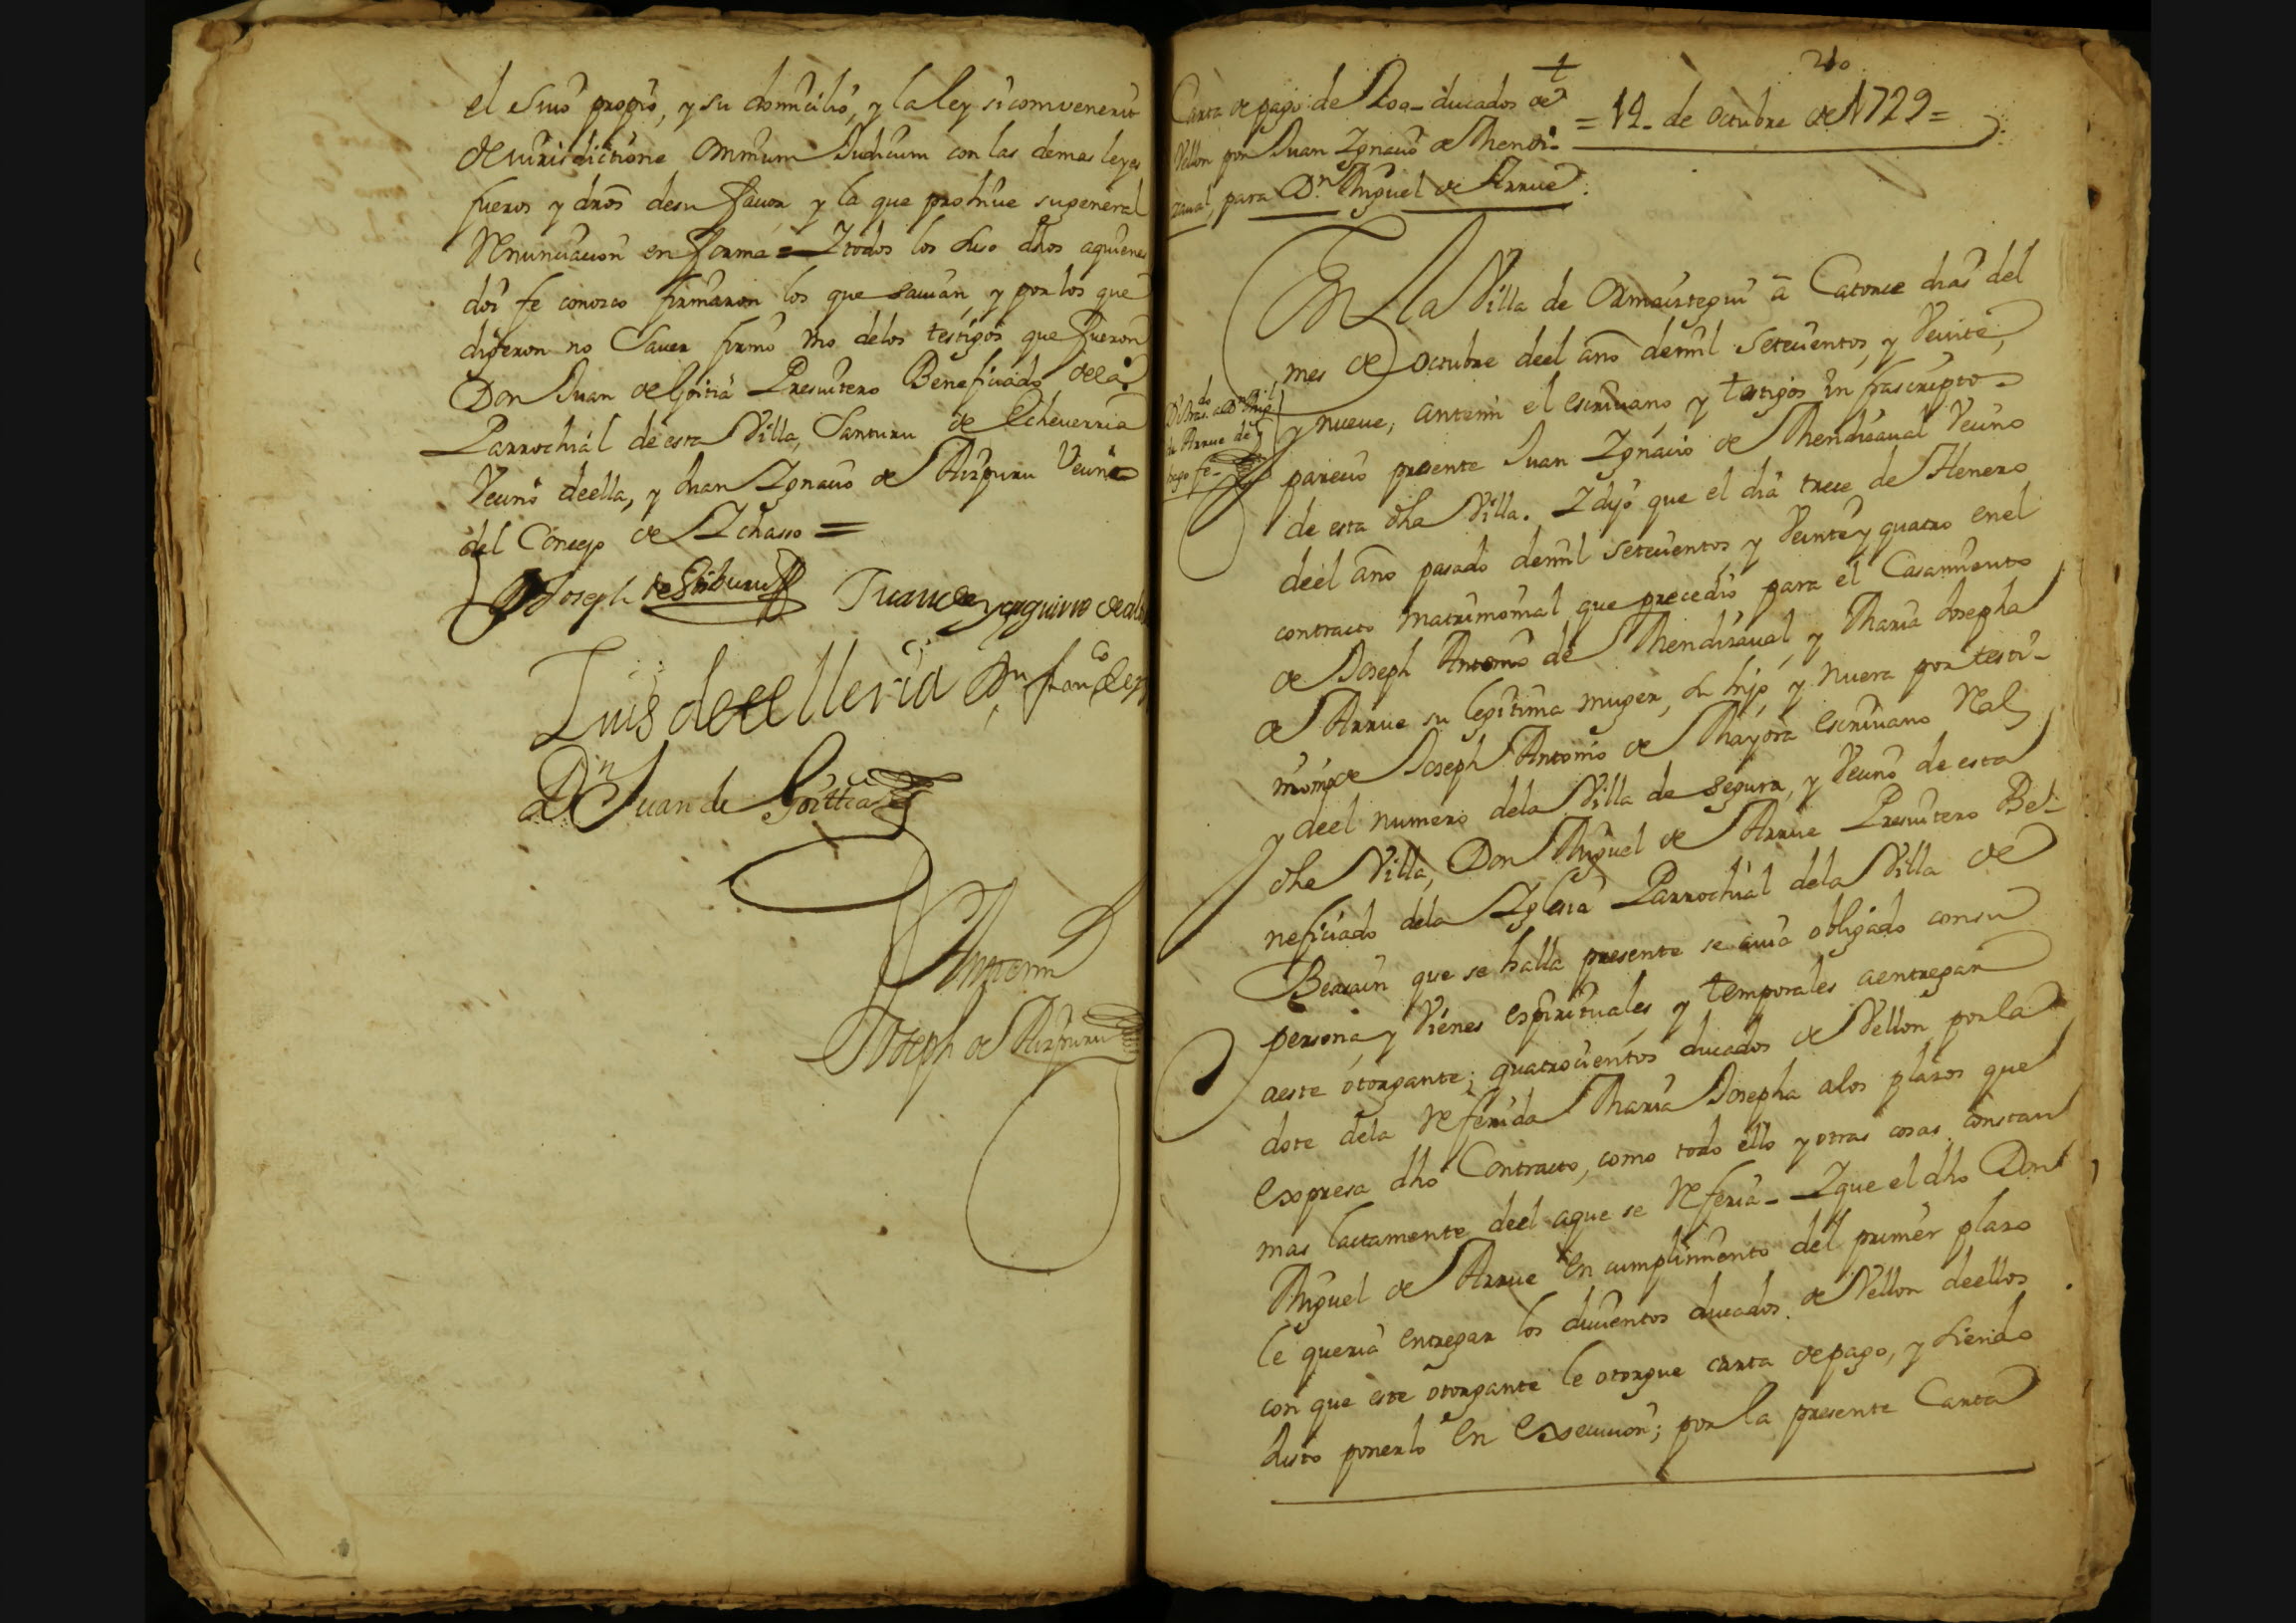 el suio propio, y su domicilio, y la ley si convenerit
de iurisdictione omnium Judicum con las demas leyes
fueros y dros desu favor y la que prohive su general
Renunciacion en forma = Y todos los suso dhos aquienes
doi fe conozco firmaron los que savian, y por los que
dijeron no Saver firmó uno delos testigos que fueron
Don Juan de Goitia Presvitero Beneficiado dela
Parrochial de esta Villa, Santuru de Echeverria
Vecino deella, y Juan Ygnacio de Aizpuru Vecino
del Concejo de Ychasso =
Joseph de
Luis de elleria Dn franco
Dn Juan de Goittia
Antemi
Joseph de Aizpuru
210
Carta de pago de 200- ducados de
Vellon por Juan Ygnacio de Mendi-
zaval, para Dn Miguel de Arrue
= 14 de Octubre de 1729 =
En La Villa de Ormaiztegui â Catorce dias del
mes de Octubre deel año demil setecientos y Veinte,
y nueve, antemi el escrivano, y testigos Infrascripto
parecio presente Juan Ygnacio de Mendizaval Vecino
de esta dha Villa. Y dijo que el dia trece de Henero
deel año pasado demil setecientos, y Veinte y quatro en el
contracto matrimonial, que precedio para el Casamiento
de Joseph Antonio de Mendizaval, y Maria Josepha
de Arrue su legitima muger, su hijo, y nuera por testi-
monio de Joseph Antonio de Mayora escrivano Real
y deel numero dela Villa de Segura, y Vecino de esta
dha Villa, Don Miguel de Arrue Presvitero Be-
neficiado dela Yglesia Parrochial dela Villa de
Beasain que se halla presente se avia obligado consu
persona y Vienes espirituales y temporales aentregar
aeste otorgante; quatrocientos ducados de Vellon por la
dote dela Referida Maria Josepha alos plazos que
expresa dho Contracto, como todo ello y otras cosas constan
mas lactamente deel aque se Referia - Y que el dho Don
Miguel de Arrue en cumplimiento del primer plazo
le queria entregar los ducientos ducados de Vellon deellos
con que este otorgante le otorgue carta de pago, y siendo
Justo ponerlo en execucion; por la presente Carta
Di tras. do a Dn Migl
de Arrue de
hago fe